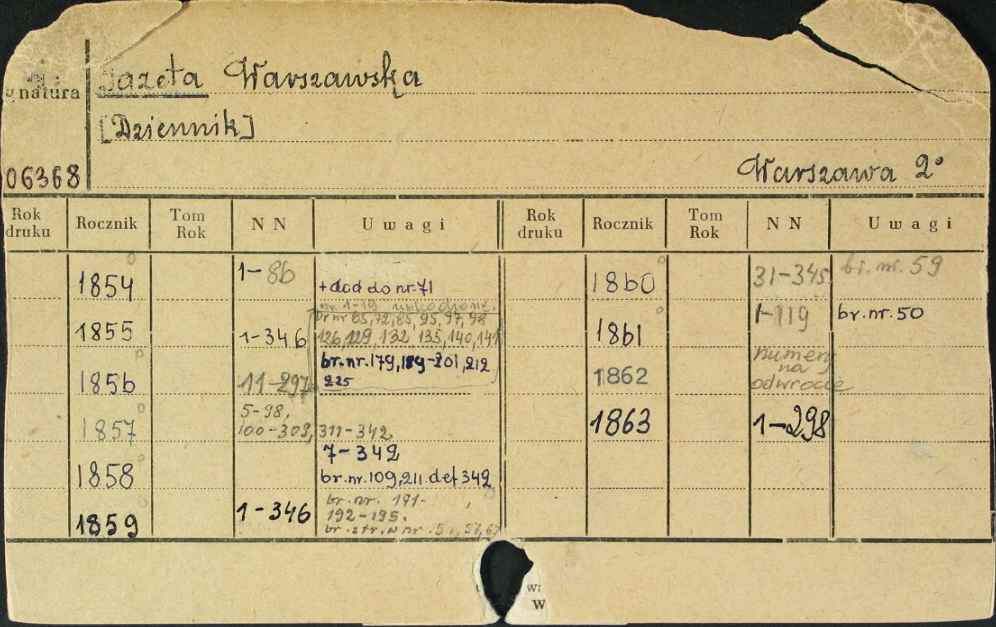 Gazeta Warszawska
natura
[Dziennik]
06368
Warszawa 2°
Rok druku Rocznik Tom Rok NN Uwagi Rok druku Rocznik Tom Rok NN Uwagi
1854 1-86 + dod do nr. 71 1860 31-345 br. nr. 59
nr 1-19
br nr 65, 72, 85, 95, 97, 98
1855 1-346 126, 129, 132 135, 140, 141 1861 1-119 br. nr. 50
br. nr. 179, 189-201, 212
1856 11-297 225 1862 numery na odwrocie
1857 5-98, 100-309, 311-342 1863 1-298
7-342
1858 br. nr. 109, 211. def 342
1859 1-346 br. nr. 191-
192-195.
br. str. w nr.
w:
W